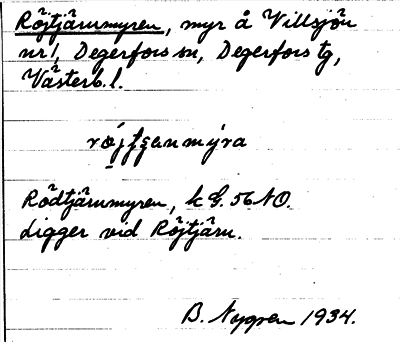 Röjtjärnmyren, myr å Villsjön
nr 1, Degerfors sn, Degerfors tg,
Västerb. l.
röjtjɛnmýra
Rödtjärnmyren, k G. 56 NO.
Ligger vid Röjtjärn.
B. Nygren 1934.